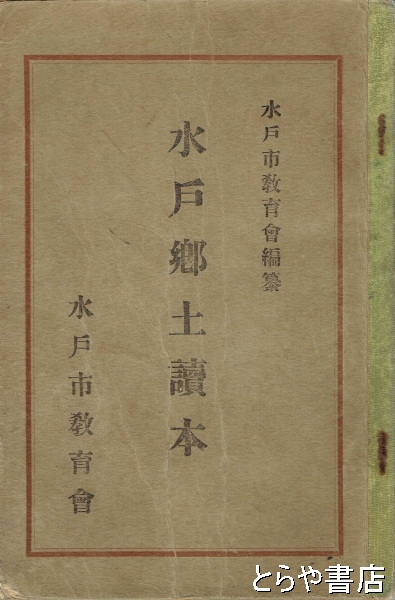 水戶市教育會編纂
水戶鄕土讀本
水戶市教育會
とらや書店